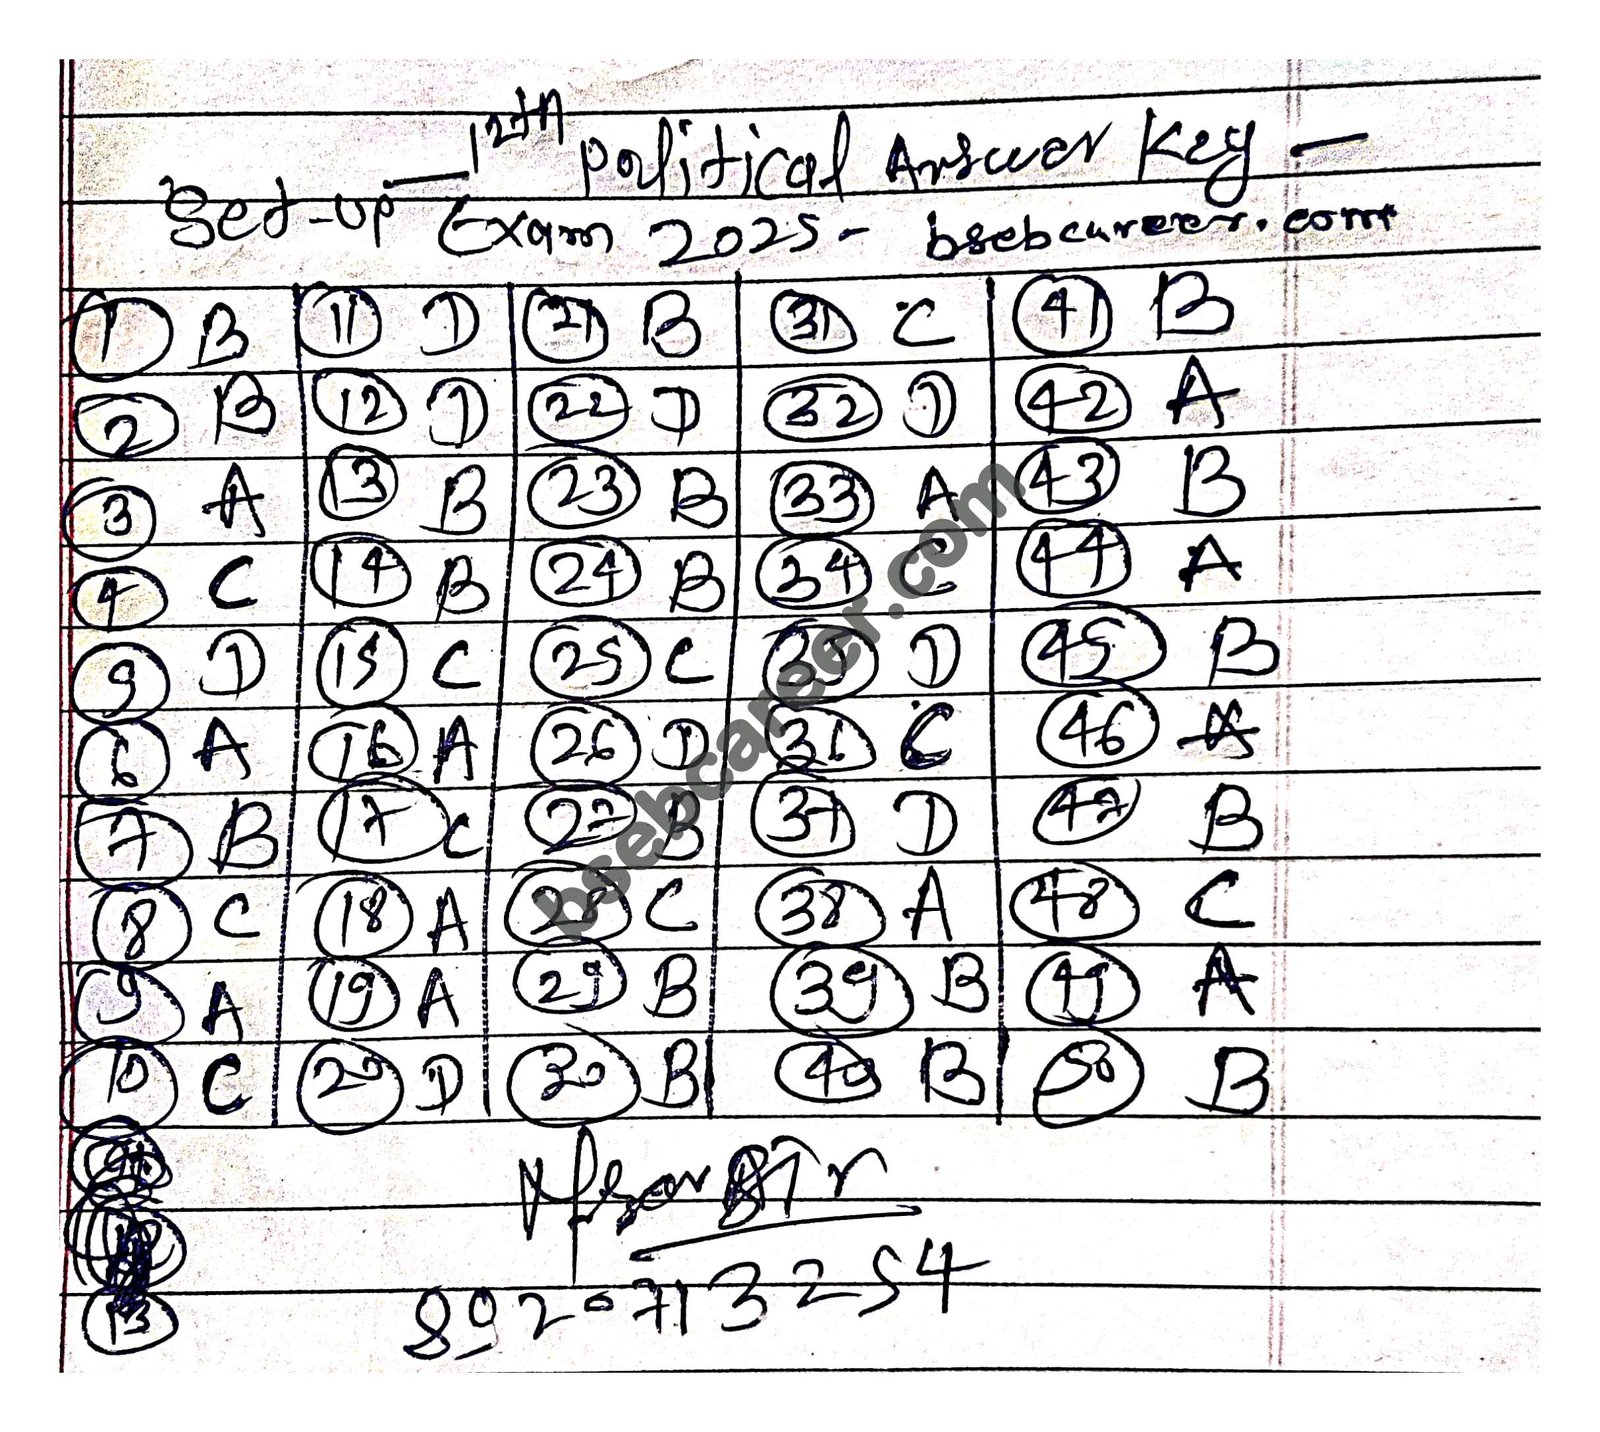 12th Political Answer Key -
Set-up Exam 2025 - bsebcareer.com
1 B 11 D 21 B 31 C 41 B
2 B 12 D 22 D 32 D 42 A
3 A 13 B 23 B 33 A 43 B
4 C 14 B 24 B 34 C 44 A
5 D 15 C 25 C 35 D 45 B
6 A 16 A 26 D 36 C 46 A
7 B 17 C 27 B 37 D 47 B
8 C 18 A 28 C 38 A 48 C
9 A 19 A 29 B 39 B 49 A
10 C 20 D 30 B 40 B 50 B
bsebcareer.com
13
8920713254